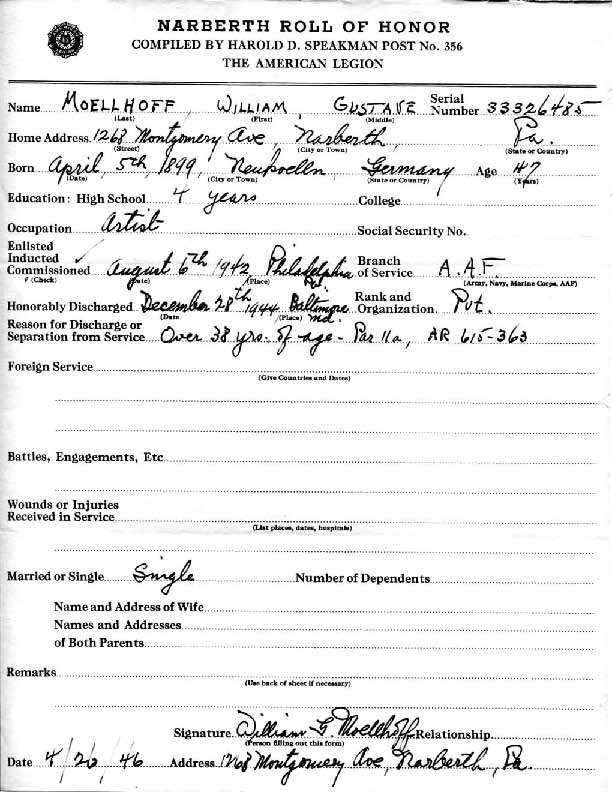 NARBERTH ROLL OF HONOR
COMPILED BY HAROLD D. SPEAKMAN POST No. 356
THE AMERICAN LEGION
Name MOELLHOFF, WILLIAM, GUSTAVE Serial Number 33326485
(Last) (First) (Middle)
Home Address 1268 Montgomery Ave, Narberth, Pa.
(Street) (City or Town) (State or Country)
Born April, 5th, 1899, Neukoelln, Germany Age 47
(Date) (City or Town) (State or Country) (Years)
Education: High School 4 years College
Occupation Artist Social Security No.
Enlisted
Inducted ✓
Commissioned August 6th 1942, Philadelphia Pa. Branch of Service A.A.F.
(Check) (Date) (Place) (Army, Navy, Marine Corps, AAF)
Honorably Discharged December 28th 1944 Baltimore Md. Rank and Organization Pvt.
(Date (Place)
Reason for Discharge or
Separation from Service Over 38 yrs. of age - Par 11a, AR 615-363
Foreign Service
(Give Countries and Dates)
Battles, Engagements, Etc
Wounds or Injuries
Received in Service
(List places, dates, hospitals)
Married or Single Single Number of Dependents
Name and Address of Wife
Names and Addresses
of Both Parents
Remarks
(Use back of sheet if necessary)
Signature William G. Moellhoff Relationship
(Person filling out this form)
Date 4/26/46 Address 1268 Montgomery Ave, Narberth, Pa.